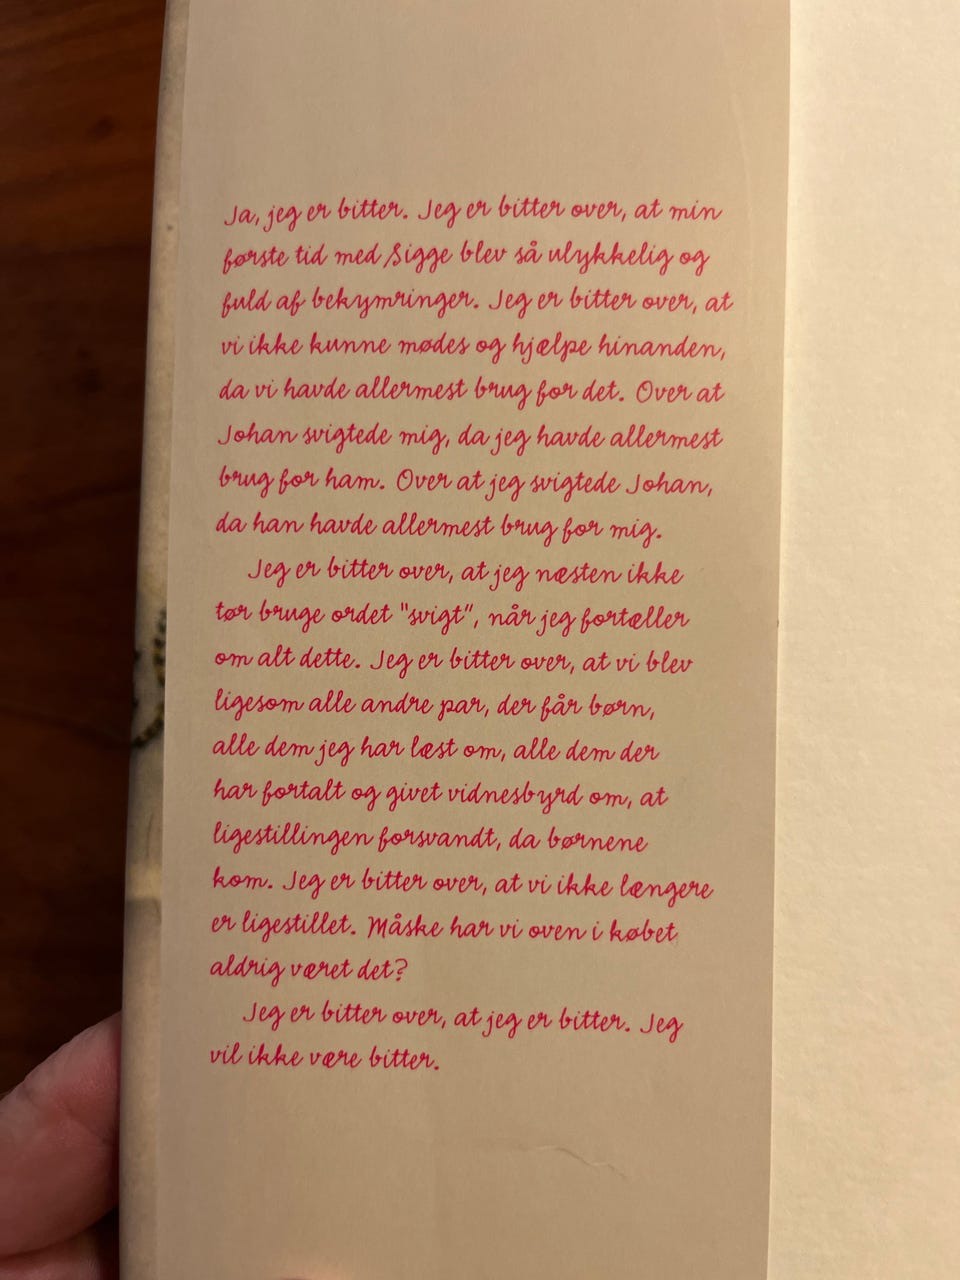 Ja, jeg er bitter. Jeg er bitter over, at min
første tid med Sigge blev så ulykkelig og
fuld af bekymringer. Jeg er bitter over, at
vi ikke kunne mødes og hjælpe hinanden,
da vi havde allermest brug for det. Over at
Johan svigtede mig, da jeg havde allermest
brug for ham. Over at jeg svigtede Johan,
da han havde allermest brug for mig.
Jeg er bitter over, at jeg næsten ikke
tør bruge ordet "svigt", når jeg fortæller
om alt dette. Jeg er bitter over, at vi blev
ligesom alle andre par, der får børn,
alle dem jeg har læst om, alle dem der
har fortalt og givet vidnesbyrd om, at
ligestillingen forsvandt, da børnene
kom. Jeg er bitter over, at vi ikke længere
er ligestillet. Måske har vi oven i købet
aldrig været det?
Jeg er bitter over, at jeg er bitter. Jeg
vil ikke være bitter.